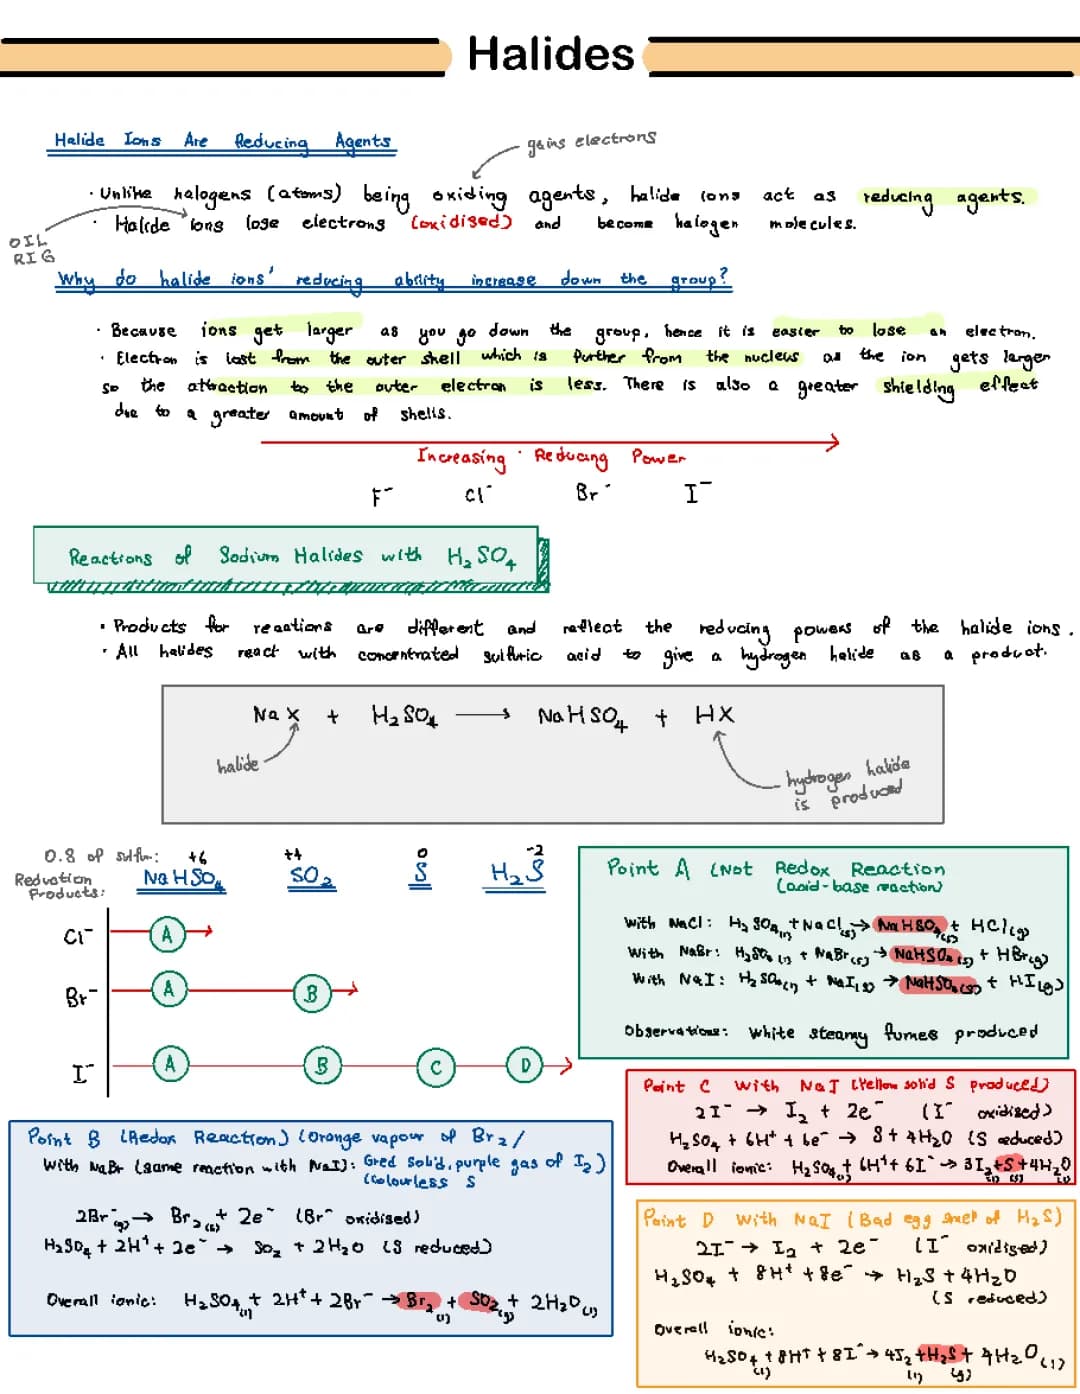 Halides
Halide Ions Are Reducing Agents
gains electrons
· Unlike halogens (atoms) being oxiding agents, halide ions act as reducing agents.
· Halide ions lose electrons (oxidised) and become halogen molecules.
OIL
RIG
Why do halide ions' reducing ability increase down the group?
· Because ions get larger as you go down the group, hence it is easier to lose an electron.
· Electron is lost from the outer shell which is further from the nucleus as the ion gets larger
so the attraction to the outer electron is less. There is also a greater shielding effect
due to a greater amount of shells.
Increasing Reducing Power
F⁻ Cl⁻ Br⁻ I⁻
Reactions of Sodium Halides with H₂SO₄
· Products for reactions are different and reflect the reducing powers of the halide ions.
· All halides react with concentrated sulfuric acid to give a hydrogen halide as a product.
NaX + H₂SO₄ → NaHSO₄ + HX
halide
hydrogen halide
is produced
O.S of sulfur: +6 +4 0 -2
Reduction
Products: NaHSO₄ SO₂ S H₂S
Cl⁻ A
Br⁻ A B
I⁻ A B C D
Point A (Not Redox Reaction
(acid-base reaction)
With NaCl: H₂SO₄(l) + NaCl(s) → NaHSO₄(s) + HCl(g)
With NaBr: H₂SO₄(l) + NaBr(s) → NaHSO₄(s) + HBr(g)
With NaI: H₂SO₄(l) + NaI(s) → NaHSO₄(s) + HI(g)
Observations: White steamy fumes produced
Point B (Redox Reaction) (Orange vapour of Br₂/
With NaBr (same reaction with NaI): Gred Solid, purple gas of I₂)
(colourless S
2Br⁻(g) → Br₂(s) + 2e⁻ (Br⁻ oxidised)
H₂SO₄ + 2H⁺ + 2e⁻ → SO₂ + 2H₂O (S reduced)
Overall ionic: H₂SO₄(l) + 2H⁺ + 2Br⁻ → Br₂(l) + SO₂(g) + 2H₂O(l)
Point C With NaI (Yellow solid S produced)
2I⁻ → I₂ + 2e⁻ (I⁻ oxidised)
H₂SO₄ + 6H⁺ + 6e⁻ → S + 4H₂O (S reduced)
Overall ionic: H₂SO₄(l) + 6H⁺ + 6I⁻ → 3I₂(l) + S(s) + 4H₂O(l)
Point D With NaI (Bad egg smel of H₂S)
2I⁻ → I₂ + 2e⁻ (I⁻ oxidised)
H₂SO₄ + 8H⁺ + 8e⁻ → H₂S + 4H₂O
(S reduced)
Overall ionic:
H₂SO₄(l) + 8H⁺ + 8I⁻ → 4I₂(l) + H₂S(g) + 4H₂O(l)